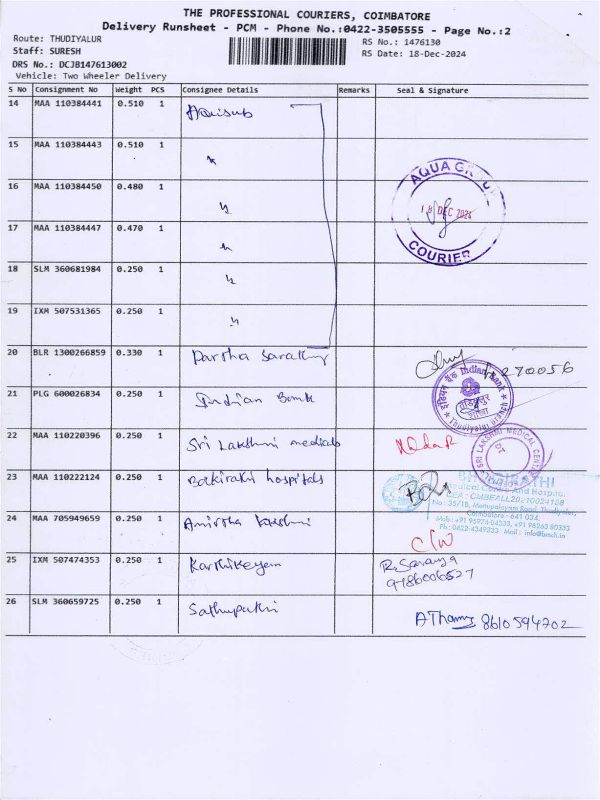 THE PROFESSIONAL COURIERS, COIMBATORE
Delivery Runsheet - PCM - Phone No.:0422-3505555 - Page No.:2
Route: THUDIYALUR
RS No.: 1476130
Staff: SURESH
RS Date: 18-Dec-2024
DRS No.: DCJB147613002
Vehicle: Two Wheeler Delivery
S No Consignment No Weight PCS Consignee Details Remarks Seal & Signature
14 MAA 110384441 0.510 1
15 MAA 110384443 0.510 1
16 MAA 110384450 0.480 1
AQUA GROUP
18 DEC 2024
COURIER
17 MAA 110384447 0.470 1
18 SLM 360681984 0.250 1
19 IXM 507531365 0.250 1
20 BLR 1300266859 0.330 1 Partha Sarathy
270056
21 PLG 600026834 0.250 1 Indian Bank
इंडियन बैंक Indian Bank
शाखा
Thudiyalur
22 MAA 110220396 0.250 1 Sri Lakshmi medicals
SRI LAKSHMI MEDICAL CENTRE
23 MAA 110222124 0.250 1 hospitals
Medical Centre And Hospital
No: 35/1B, Mettupalayam Road, Thudiyalur,
Coimbatore - 641 034.
24 MAA 705949659 0.250 1 Amirtha Lakshmi
Ph: 0422-4349333 Mail: info@bmch.in
C/W
25 IXM 507474353 0.250 1 Karthikeyan
R. Saranya
9786006527
26 SLM 360659725 0.250 1 Sathupathi
8610594702